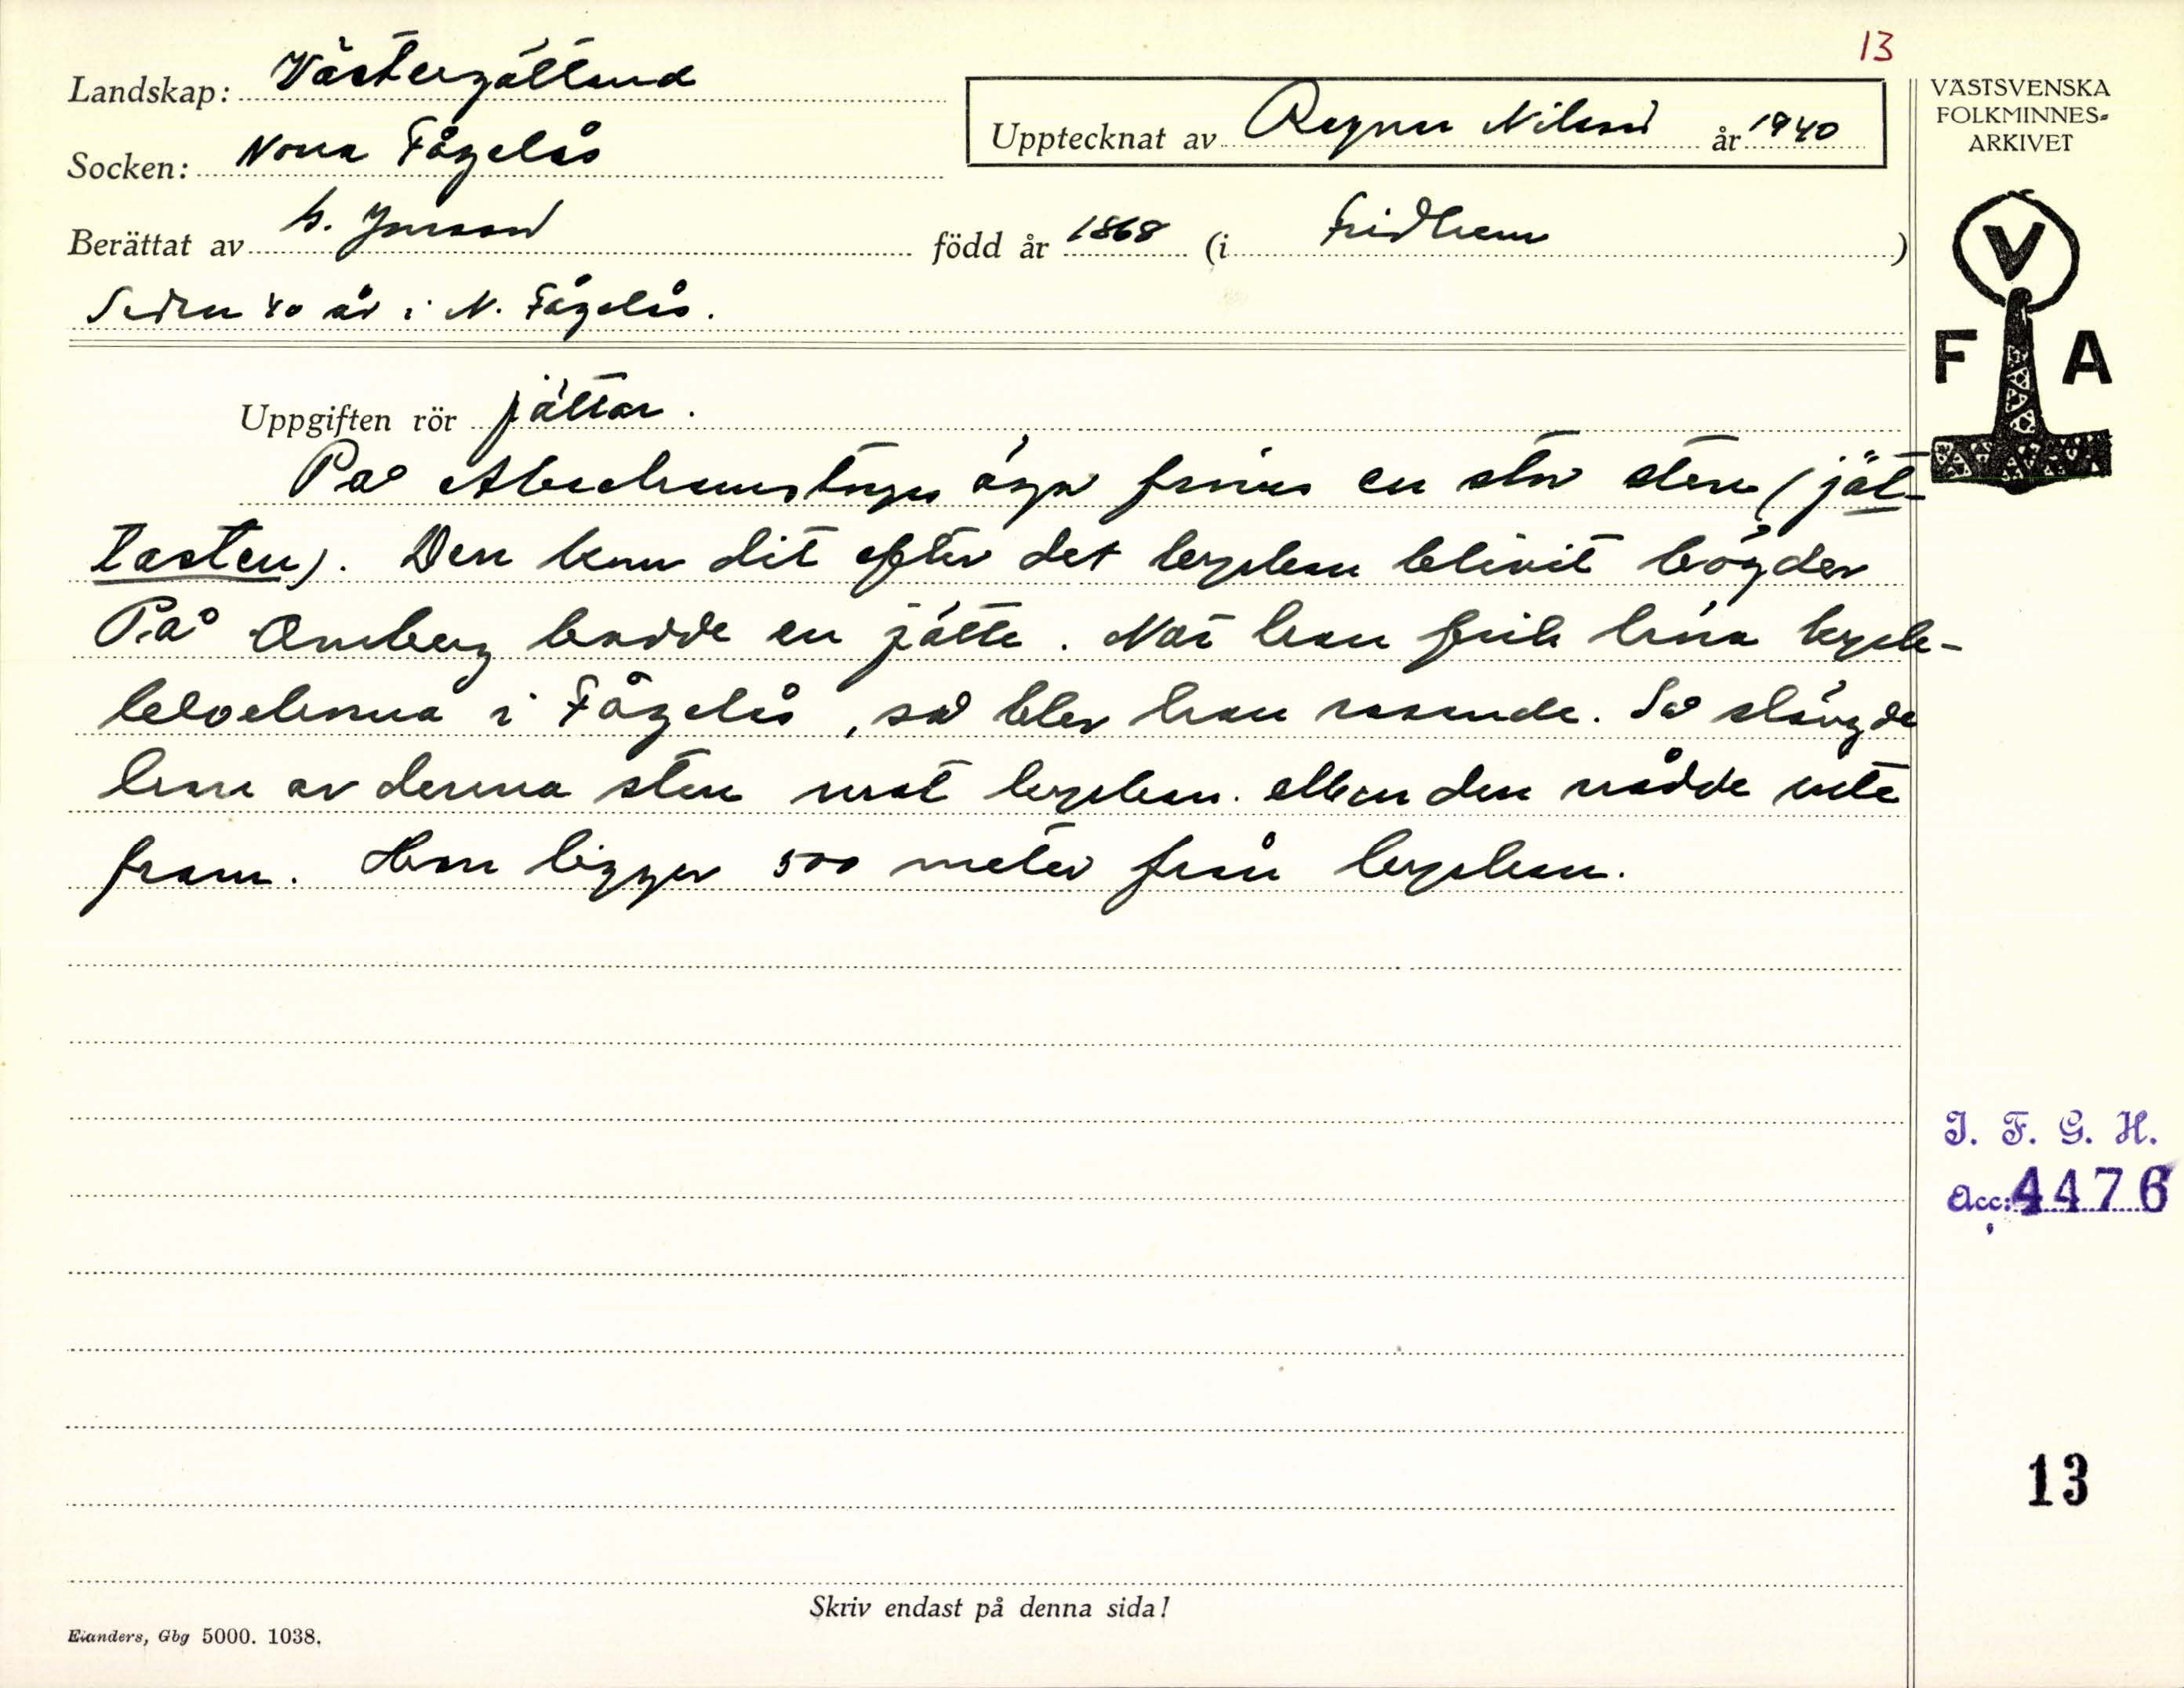 13
Landskap: Västergötland
Upptecknat av Ragnar Nilsson år 1940
VÄSTSVENSKA
FOLKMINNES-
ARKIVET
Socken: Norra Fågelås
Berättat av Jonsson född år 1868 (i Fridhem)
Sedan 40 år i N. Fågelås.
V
F A
Uppgiften rör jättar.
På ägor finns en stor sten (jät-
tasten). Den kom dit efter det kyrkan blivit bögder
På Omberg bodde en jätte. När han fick höra kyrk-
klockorna i Fågelås, så blev han rasande. Så slängde
han av denna sten mot kyrkan. Men den nådde inte
fram. Hon ligger 500 meter från kyrkan.
I. F. G. H.
Acc: 4476
13
Skriv endast på denna sida!
Elanders, Gbg 5000. 1038.